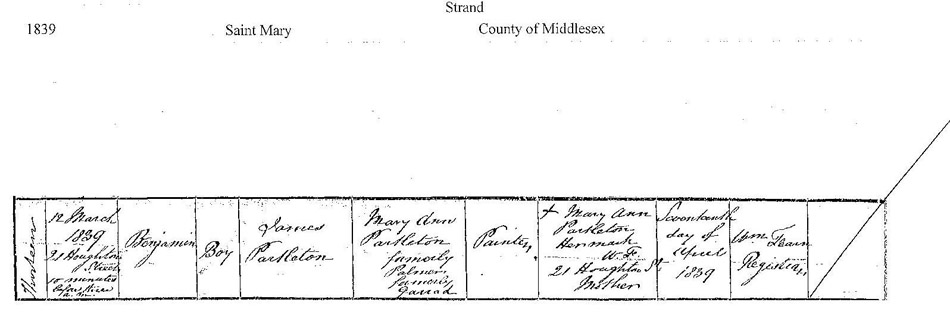 Strand
1839 Saint Mary County of Middlesex
Thirteen
12 March
1839
21 Houghton
Street
10 minutes
before five
a.m.
Benjamin
Boy
James
Partleton
Mary Ann
Partleton
formerly
Palmer
formerly
Garrad
Painter
+ Mary Ann
Partleton
Her mark
21 Houghton St
Mother
Seventeenth
day of
April
1839
Wm.
Registrar